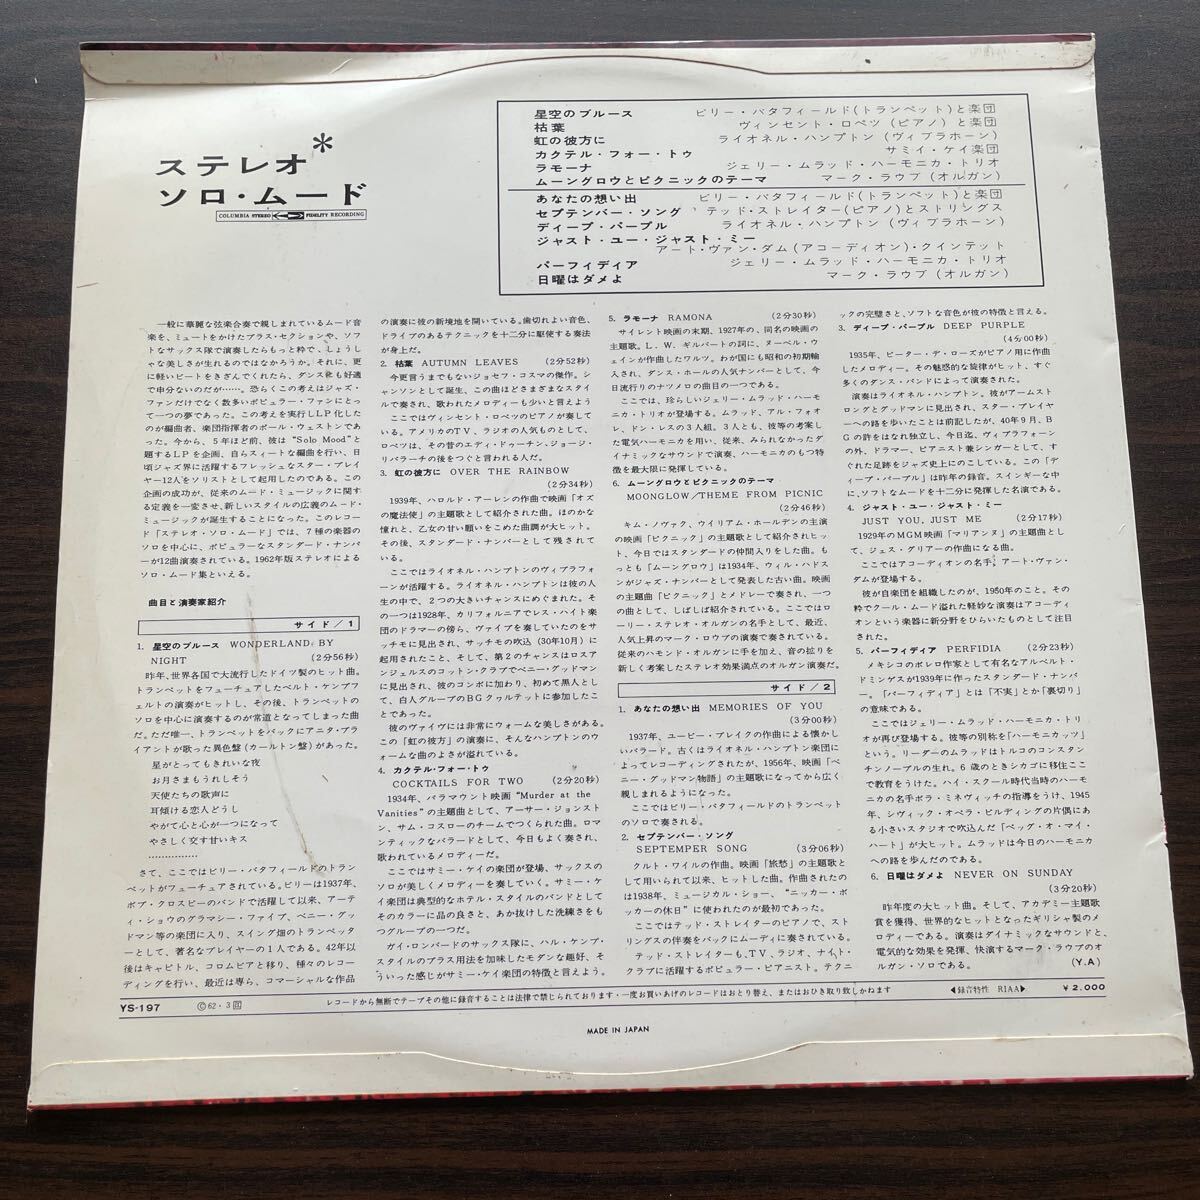 ステレオ*
ソロ・ムード
COLUMBIA STEREO FIDELITY RECORDING
星空のブルース ビリー・バタフィールド(トランペット)と楽団
枯葉 ヴィンセント・ロペツ(ピアノ)と楽団
虹の彼方に ライオネル・ハンプトン(ヴィブラホーン)
カクテル・フォー・トゥ サミイ・ケイ楽団
ラモーナ ジェリー・ムラッド・ハーモニカ・トリオ
ムーングロウとピクニックのテーマ マーク・ラウブ(オルガン)
あなたの想い出 ビリー・バタフィールド(トランペット)と楽団
セプテンバー・ソング テッド・ストレイター(ピアノ)とストリングス
ディープ・パープル ライオネル・ハンプトン(ヴィブラホーン)
ジャスト・ユー・ジャスト・ミー
アート・ヴァン・ダム(アコーディオン)・クインテット
パーフィディア ジェリー・ムラッド・ハーモニカ・トリオ
日曜はダメよ マーク・ラウブ(オルガン)
一般に華麗な弦楽合奏で親しまれているムード音
楽を、ミュートをかけたブラス・セクションや、ソフ
トなサックス隊で演奏したらもっと粋で、しょうしゃ
な美しさが生れるのではなかろうか。それに、更
に軽いビートをきざんでくれたら、ダンスにも好適
で申分ないのだが……。恐らくこの考えはジャズ・
ファンだけでなく数多いポピュラー・ファンにとっ
て一つの夢であった。この考えを実行しLP化した
のが編曲者、楽団指揮者のポール・ウェストンであ
った。今から、5年ほど前、彼は“Solo Mood”と
題するLPを企画、自らスィートな編曲を行い、日
頃ジャズ界に活躍するフレッシュなスター・プレイ
ヤー12人をソリストとして起用したのである。この
企画の成功が、従来のムード・ミュージックに関す
る定義を一変させ、新しいスタイルの広義のムード・
ミュージックが誕生することになった。このレコー
ド「ステレオ・ソロ・ムード」では、7種の楽器の
ソロを中心に、ポピュラーなスタンダード・ナンバ
ーが12曲演奏されている。1962年版ステレオによる
ソロ・ムード集といえる。
曲目と演奏家紹介
サイド/1
1. 星空のブルース WONDERLAND BY
NIGHT (2分56秒)
昨年、世界各国で大流行したドイツ製のヒット曲。
トランペットをフューチュアしたベルト・ケンプフ
ェルトの演奏がヒットし、その後、トランペットの
ソロを中心に演奏するのが常道となってしまった曲
だ。ただ唯一、トランペットをバックにアニタ・ブラ
イアントが歌った異色盤(カールトン盤)があった。
星がとってもきれいな夜
お月さまもうれしそう
天使たちの歌声に
耳傾ける恋人どうし
やがて心と心が一つになって
やさしく交す甘いキス
……………
さて、ここではビリー・バタフィールドのトラン
ペットがフューチュアされている。ビリーは1937年、
ボブ・クロスビーのバンドで活躍して以来、アーテ
ィ・ショウのグラマシー・ファイブ、ベニー・グッ
ドマン等の楽団に入り、スイング畑のトランペッタ
ーとして、著名なプレイヤーの1人である。42年以
後はキャピトル、コロムビアと移り、種々のレコー
ディングを行い、最近は専ら、コマーシャルな作品
の演奏に彼の新境地を開いている。歯切れよい音色、
ドライブのあるテクニックを十二分に駆使する奏法
が身上だ。
2. 枯葉 AUTUMN LEAVES (2分52秒)
今更言うまでもないジョセフ・コスマの傑作。シ
ャンソンとして誕生、この曲ほどさまざまなスタイ
ルで奏され、歌われたメロディーも少いと言えよう
ここではヴィンセント・ロペツのピアノが奏して
いる。アメリカのTV、ラジオの人気ものとして、
ロペツは、その昔のエディ・ドゥーチン、ジョージ・
リバラーチの後をつぐと言われる人だ。
3. 虹の彼方に OVER THE RAINBOW
(2分34秒)
1939年、ハロルド・アーレンの作曲で映画「オズ
の魔法使」の主題歌として紹介された曲。ほのかな
憧れと、乙女の甘い願いをこめた曲調が大ヒット。
その後、スタンダード・ナンバーとして残されて
いる。
ここではライオネル・ハンプトンのヴィブラフォ
ーンが活躍する。ライオネル・ハンプトンは彼の人
生の中で、2つの大きいチャンスにめぐまれた。そ
の一つは1928年、カリフォルニアでレス・ハイト楽
団のドラマーの傍ら、ヴァイブを奏していたのをサ
ッチモに見出され、サッチモの吹込(30年10月)に
起用されたこと、そして、第2のチャンスはロスア
ンジェルスのコットン・クラブでベニー・グッドマン
に見出され、彼のコンボに加わり、初めて黒人とし
て、白人グループのBGクヮルテットに参加したこ
とであった。
彼のヴァイヴには非常にウォームな美しさがある。
この「虹の彼方」の演奏に、そんなハンプトンのウ
ォームな曲のよさが溢れている。
4. カクテル・フォー・トゥ
COCKTAILS FOR TWO (2分20秒)
1934年、パラマウント映画“Murder at the
Vanities”の主題曲として、アーサー・ジョンスト
ン、サム・コスローのチームでつくられた曲。ロマ
ンティックなバラードとして、今日もよく奏され、
歌われているメロディーだ。
ここではサミー・ケイの楽団が登場、サックスの
ソロが美しくメロディーを奏していく。サミー・ケ
イ楽団は典型的なホテル・スタイルのバンドとして
そのカラーに品の良さと、あか抜けした洗練さをも
つグループの一つだ。
ガイ・ロンバードのサックス隊に、ハル・ケンプ・
スタイルのブラス用法を加味したモダンな趣好、そ
ういった感じがサミー・ケイ楽団の特徴と言えよう。
5. ラモーナ RAMONA (2分30秒)
サイレント映画の末期、1927年の、同名の映画の
主題歌。L.W.ギルバートの詞に、ヌーベル・ウ
ェインが作曲したワルツ。わが国にも昭和の初期輸
入され、ダンス・ホールの人気ナンバーとして、今
日流行りのナツメロの曲目の一つである。
ここでは、珍らしいジェリー・ムラッド・ハーモ
ニカ・トリオが登場する。ムラッド、アル・フォオ
レ、ドン・レスの3人組。3人とも、彼等の考案し
た電気ハーモニカを用い、従来、みられなかったダ
イナミックなサウンドで演奏、ハーモニカのもつ特
徴を最大限に発揮している。
6. ムーングロウとピクニックのテーマ
MOONGLOW/THEME FROM PICNIC
(2分46秒)
キム・ノヴァク、ウイリアム・ホールデンの主演
の映画「ピクニック」の主題歌として紹介されヒッ
ト、今日ではスタンダードの仲間入りをした曲。も
っとも「ムーングロウ」は1934年、ウィル・ハドス
ンがジャズ・ナンバーとして発表した古い曲。映画
の主題曲「ピクニック」とメドレーで奏され、一つ
の曲として、しばしば紹介されている。ここではロ
ーリー・ステレオ・オルガンの名手として、最近、
人気上昇のマーク・ロウブの演奏で奏されている。
従来のハモンド・オルガンに手を加え、音の拡りを
新しく考案したステレオ効果満点のオルガン演奏だ。
サイド/2
1. あなたの想い出 MEMORIES OF YOU
(3分00秒)
1937年、ユービー・ブレイクの作曲による懐かし
いバラード。古くはライオネル・ハンプトン楽団に
よってレコーディングされたが、1956年、映画「ベ
ニー・グッドマン物語」の主題歌になってから広く
親しまれるようになった。
ここではビリー・バタフィールドのトランペット
のソロで奏される。
2. セプテンバー・ソング
SEPTEMPER SONG (3分06秒)
クルト・ワイルの作曲。映画「旅愁」の主題歌と
して用いられて以来、ヒットした曲。作曲されたの
は1938年、ミュージカル・ショー、“ニッカー・ボ
ッカーの休日”に使われたのが最初であった。
ここではテッド・ストレイターのピアノで、スト
リングスの伴奏をバックにムーディに奏されている。
テッド・ストレイターも、TV、ラジオ、ナイト・
クラブに活躍するポピュラー・ピアニスト。テクニ
ックの完璧さと、ソフトな音色が彼の特徴と言える。
3. ディープ・パープル DEEP PURPLE
(4分00秒)
1935年、ピーター・デ・ローズがピアノ用に作曲
したメロディー。その魅惑的な旋律がヒット、すぐ
多くのダンス・バンドによって演奏された。
演奏はライオネル・ハンプトン。彼がアームスト
ロングとグッドマンに見出され、スター・プレイヤ
ーへの道を歩いたことは前記したが、40年9月、B
Gの許をはなれ独立し、今日迄、ヴィブラフォーン
の外、ドラマー、ピアニスト兼シンガーとして、す
ぐれた足跡をジャズ史上にのこしている。この「デ
ィープ・パープル」は昨年の録音。スインギーな中
に、ソフトなムードを十二分に発揮した名演である。
4. ジャスト・ユー・ジャスト・ミー
JUST YOU, JUST ME (2分17秒)
1929年のMGM映画「マリアンヌ」の主題曲とし
て、ジェス・グリアーの作曲になる曲。
ここではアコーディオンの名手、アート・ヴァン・
ダムが登場する。
彼が自楽団を組織したのが、1950年のこと。その
粋でクール・ムード溢れた軽妙な演奏はアコーディ
オンという楽器に新分野をひらいたものとして注目
された。
5. パーフィディア PERFIDIA (2分23秒)
メキシコのボレロ作家として有名なアルベルト・
ドミンゲスが1939年に作ったスタンダード・ナンバ
ー。「パーフィディア」とは“不実”とか“裏切り”
の意味である。
ここではジェリー・ムラッド・ハーモニカ・トリ
オが再び登場する。彼等の別称を「ハーモニカッツ」
という。リーダーのムラッドはトルコのコンスタン
チンノープルの生れ。6歳のときシカゴに移住ここ
で教育をうけた。ハイ・スクール時代当時のハーモ
ニカの名手ボラ・ミネヴィッチの指導をうけ、1945
年、シヴィック・オペラ・ビルディングの片隅にあ
る小さいスタジオで吹込んだ「ペッグ・オ・マイ・
ハート」が大ヒット。ムラッドは今日のハーモニカ
への路を歩んだのである。
6. 日曜はダメよ NEVER ON SUNDAY
(3分20秒)
昨年度の大ヒット曲。そして、アカデミー主題歌
賞を獲得、世界的なヒットとなったギリシャ製のメ
ロディーである。演奏はダイナミックなサウンドと、
電気的な効果を発揮、快演するマーク・ラウブのオ
ルガン・ソロである。 (Y.A)
YS-197 Ⓒ62・3 レコードから無断でテープその他に録音することは法律で禁じられております・一度お買いあげのレコードはおとり替え、またはおひき取り致しかねます ◀録音特性 RIAA▶ ¥2.000
MADE IN JAPAN